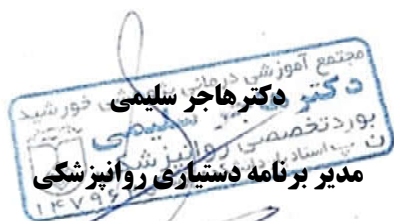 مجتمع آموزشی درمانی خورشید
دکترهاجر سلیمی
دکتر سلیمی
بورد تخصصی روانپزشکی
مدیر برنامه دستیاری روانپزشکی